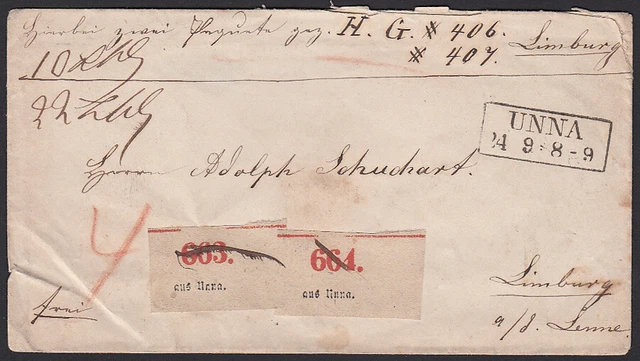 Hierbei zwei Paquete gez. H. G. # 406.
# 407.
Limburg
10
22
UNNA
24 9 * 8 - 9
Herrn Adolph Schuchart.
4
663.
aus Unna.
664.
aus Unna.
Limburg
a/d. Lenne
frei